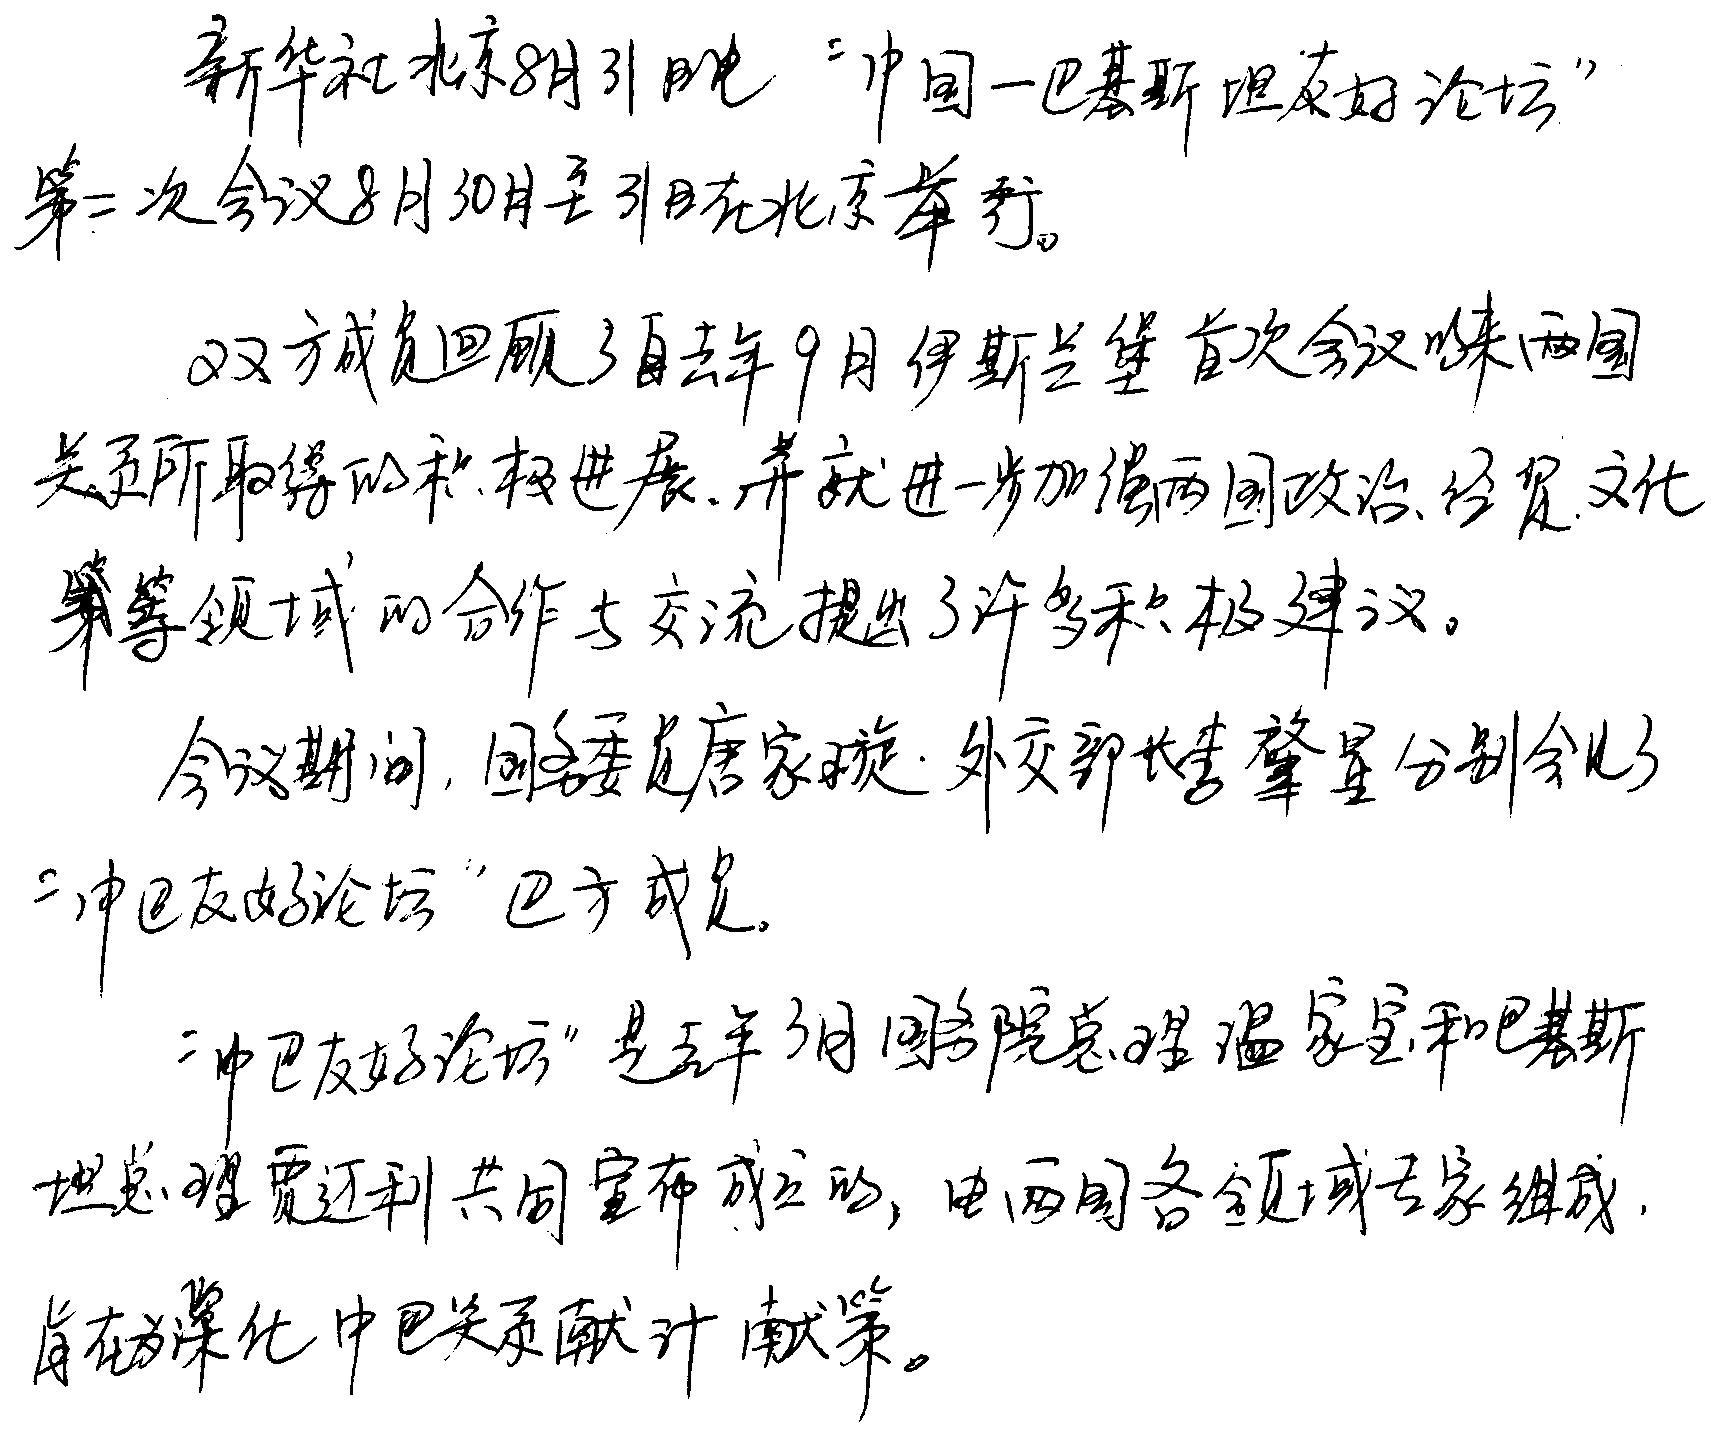 新华社北京8月31日电 “中国一巴基斯坦友好论坛”
第二次会议8月30月至31日在北京举行。
双方成员回顾了自去年9月伊斯兰堡首次会议以来两国
关系所取得的积极进展、并就进一步加强两国政治、经贸、文化
等领域的合作与交流提出了许多积极建议。
会议期间,国务委员唐家璇、外交部长李肇星分别会见了
“中巴友好论坛”巴方成员。
“中巴友好论坛”是去年3月国务院总理温家宝和巴基斯
坦总理贾迈利共同宣布成立的,由两国各领域专家组成,
旨在为深化中巴关系献计献策。